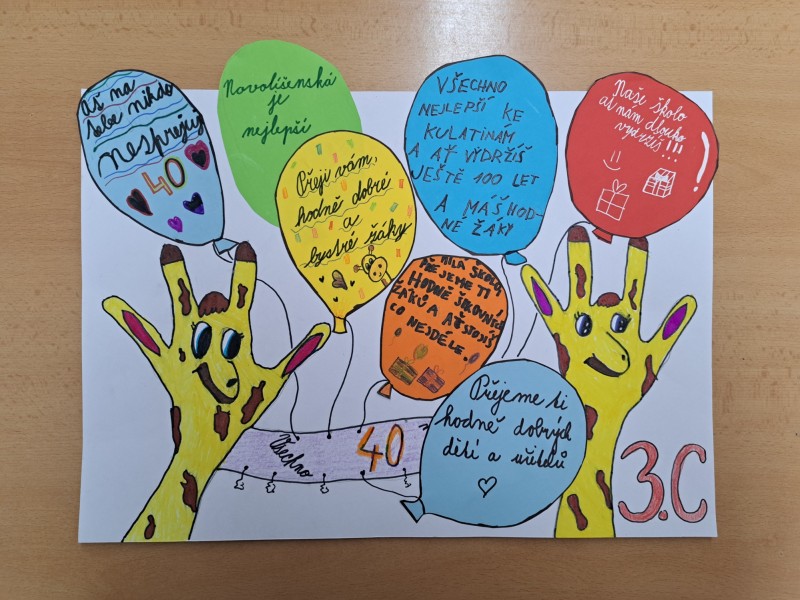 Ať na
sebe nikdo
nesprejuje
40
Novolíšenská
je
nejlepší
Přeji vám,
hodně dobré
a
bystré žáky
VŠECHNO
NEJLEPŠÍ KE
KULATINAM
A AŤ VYDRŽÍŠ
JEŠTĚ 100 LET
A MÁŠ HOD-
NE ŽÁKY
Naše školo
ať nám dlouho
vydržíš!!!
MILÁ ŠKOLO,
PŘEJEME TI
HODNĚ ŠIKOVNÝCH
ŽÁKŮ A AŤ STOJÍŠ
CO NEJDÉLE.
Všechno
40
Přejeme ti
hodně dobrých
dětí a učitelů
3.C